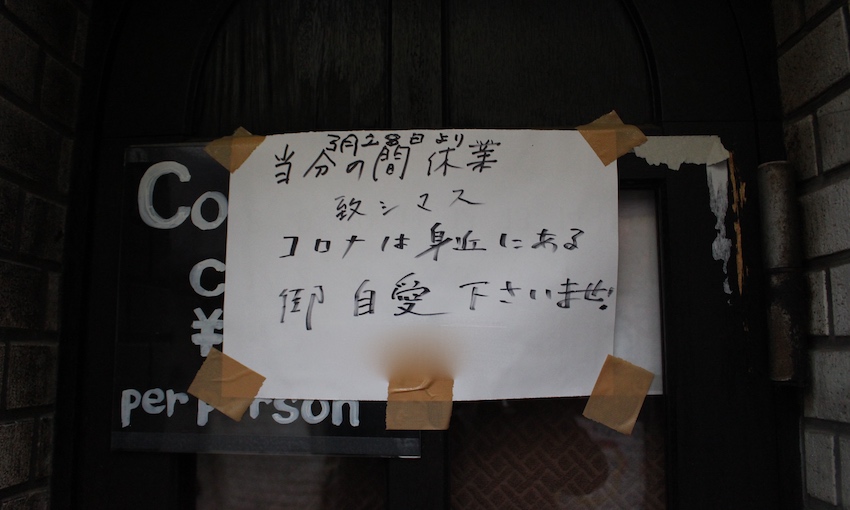 3月28日より
当分の間休業
致シマス
コロナは身近にある
御自愛下さいませ!
Co
c
¥
per person